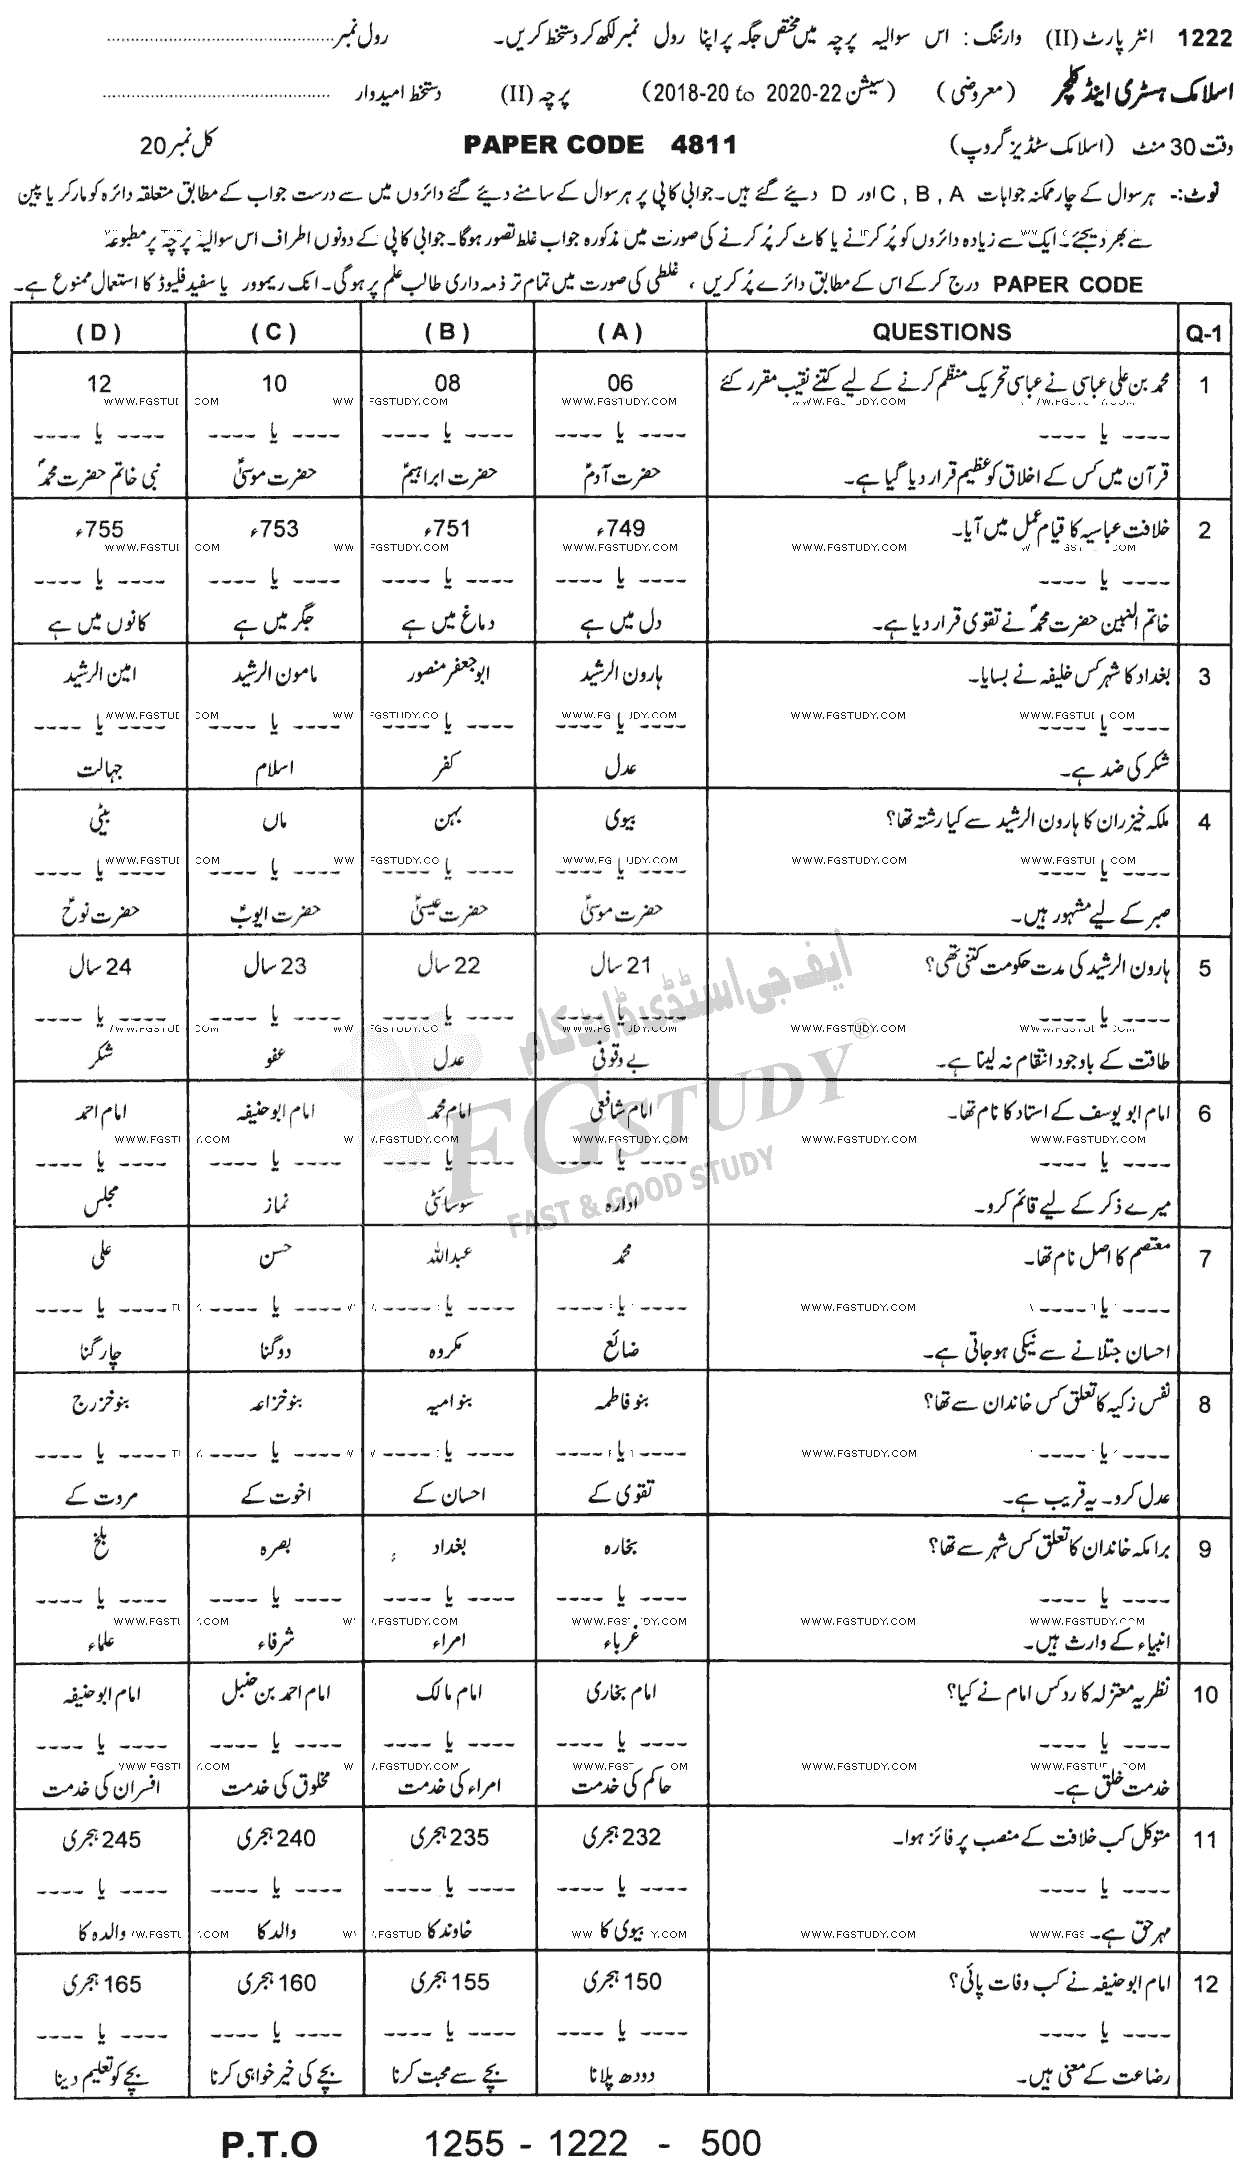 1222 انٹر پارٹ (II) وارننگ: اس سوالیہ پرچہ میں مختص جگہ پر اپنا رول نمبر لکھ کر دستخط کریں۔ رول نمبر
اسلامک ہسٹری اینڈ کلچر (معروضی) (سیشن 2020-22 to 2018-20) پرچہ (II) دستخط امیدوار
وقت 30 منٹ (اسلامک سٹڈیز گروپ) PAPER CODE 4811 کل نمبر 20
نوٹ:- ہر سوال کے چار ممکنہ جوابات C , B , A اور D دیئے گئے ہیں۔ جوابی کاپی پر ہر سوال کے سامنے دیئے گئے دائروں میں سے درست جواب کے مطابق متعلقہ دائرہ کو مارکر یا پین
سے بھر دیجئے۔ ایک سے زیادہ دائروں کو پُر کرنے یا کاٹ کر پُر کرنے کی صورت میں مذکورہ جواب غلط تصور ہوگا۔ جوابی کاپی کے دونوں اطراف اس سوالیہ پرچہ پر مطبوعہ
PAPER CODE درج کر کے اس کے مطابق دائرے پُر کریں ، غلطی کی صورت میں تمام تر ذمہ داری طالب علم پر ہوگی۔ انک ریموور یا سفید فلیوڈ کا استعمال ممنوع ہے۔
Q-1 QUESTIONS ( A ) ( B ) ( C ) ( D )
1 محمد بن علی عباسی نے عباسی تحریک منظم کرنے کے لیے کتنے نقیب مقرر کئے 06 08 10 12
---- یا ---- ---- یا ---- ---- یا ---- ---- یا ---- ---- یا ----
قرآن میں کس کے اخلاق کو عظیم قرار دیا گیا ہے۔ حضرت آدمؑ حضرت ابراہیمؑ حضرت موسیٰؑ نبی خاتم حضرت محمدؐ
2 خلافت عباسیہ کا قیام عمل میں آیا۔ 749ء 751ء 753ء 755ء
---- یا ---- ---- یا ---- ---- یا ---- ---- یا ---- ---- یا ----
خاتم النبین حضرت محمدؐ نے تقویٰ قرار دیا ہے۔ دل میں ہے دماغ میں ہے جگر میں ہے کانوں میں ہے
3 بغداد کا شہر کس خلیفہ نے بسایا۔ ہارون الرشید ابو جعفر منصور مامون الرشید امین الرشید
---- یا ---- ---- یا ---- ---- یا ---- ---- یا ---- ---- یا ----
شکر کی ضد ہے۔ عدل کفر اسلام جہالت
4 ملکہ خیزران کا ہارون الرشید سے کیا رشتہ تھا؟ بیوی بہن ماں بیٹی
---- یا ---- ---- یا ---- ---- یا ---- ---- یا ---- ---- یا ----
صبر کے لیے مشہور ہیں۔ حضرت موسیٰؑ حضرت عیسیٰؑ حضرت ایوبؑ حضرت نوحؑ
5 ہارون الرشید کی مدت حکومت کتنی تھی؟ 21 سال 22 سال 23 سال 24 سال
---- یا ---- ---- یا ---- ---- یا ---- ---- یا ---- ---- یا ----
طاقت کے باوجود انتقام نہ لینا ہے۔ بے وقوفی عدل عفو شکر
6 امام ابو یوسف کے استاد کا نام تھا۔ امام شافعی امام محمد امام ابو حنیفہ امام احمد
---- یا ---- ---- یا ---- ---- یا ---- ---- یا ---- ---- یا ----
میرے ذکر کے لیے قائم کرو۔ ادارہ سوسائٹی نماز مجلس
7 معتصم کا اصل نام تھا۔ محمد عبداللہ حسن علی
---- یا ---- ---- یا ---- ---- یا ---- ---- یا ---- ---- یا ----
احسان جتلانے سے نیکی ہو جاتی ہے۔ ضائع مکروہ دوگنا چار گنا
8 نفس زکیہ کا تعلق کس خاندان سے تھا؟ بنو فاطمہ بنو امیہ بنو خزاعہ بنو خزرج
---- یا ---- ---- یا ---- ---- یا ---- ---- یا ---- ---- یا ----
عدل کرو۔ یہ قریب ہے۔ تقویٰ کے احسان کے اخوت کے مروت کے
9 برامکہ خاندان کا تعلق کس شہر سے تھا؟ بخارہ بغداد بصرہ بلخ
---- یا ---- ---- یا ---- ---- یا ---- ---- یا ---- ---- یا ----
انبیاء کے وارث ہیں۔ غرباء امراء شرفاء علماء
10 نظریہ معتزلہ کا رد کس امام نے کیا؟ امام بخاری امام مالک امام احمد بن حنبل امام ابو حنیفہ
---- یا ---- ---- یا ---- ---- یا ---- ---- یا ---- ---- یا ----
خدمت خلق ہے۔ حاکم کی خدمت امراء کی خدمت مخلوق کی خدمت افسران کی خدمت
11 متوکل کب خلافت کے منصب پر فائز ہوا۔ 232 ہجری 235 ہجری 240 ہجری 245 ہجری
---- یا ---- ---- یا ---- ---- یا ---- ---- یا ---- ---- یا ----
مہر حق ہے۔ بیوی کا خاوند کا والد کا والدہ کا
12 امام ابو حنیفہ نے کب وفات پائی؟ 150 ہجری 155 ہجری 160 ہجری 165 ہجری
---- یا ---- ---- یا ---- ---- یا ---- ---- یا ---- ---- یا ----
رضاعت کے معنی ہیں۔ دودھ پلانا بچے سے محبت کرنا بچے کی خیر خواہی کرنا بچے کو تعلیم دینا
ایف جی اسٹڈی ڈاٹ کام
FGSTUDY®
FAST & GOOD STUDY
WWW.FGSTUDY.COM
P.T.O 1255 - 1222 - 500